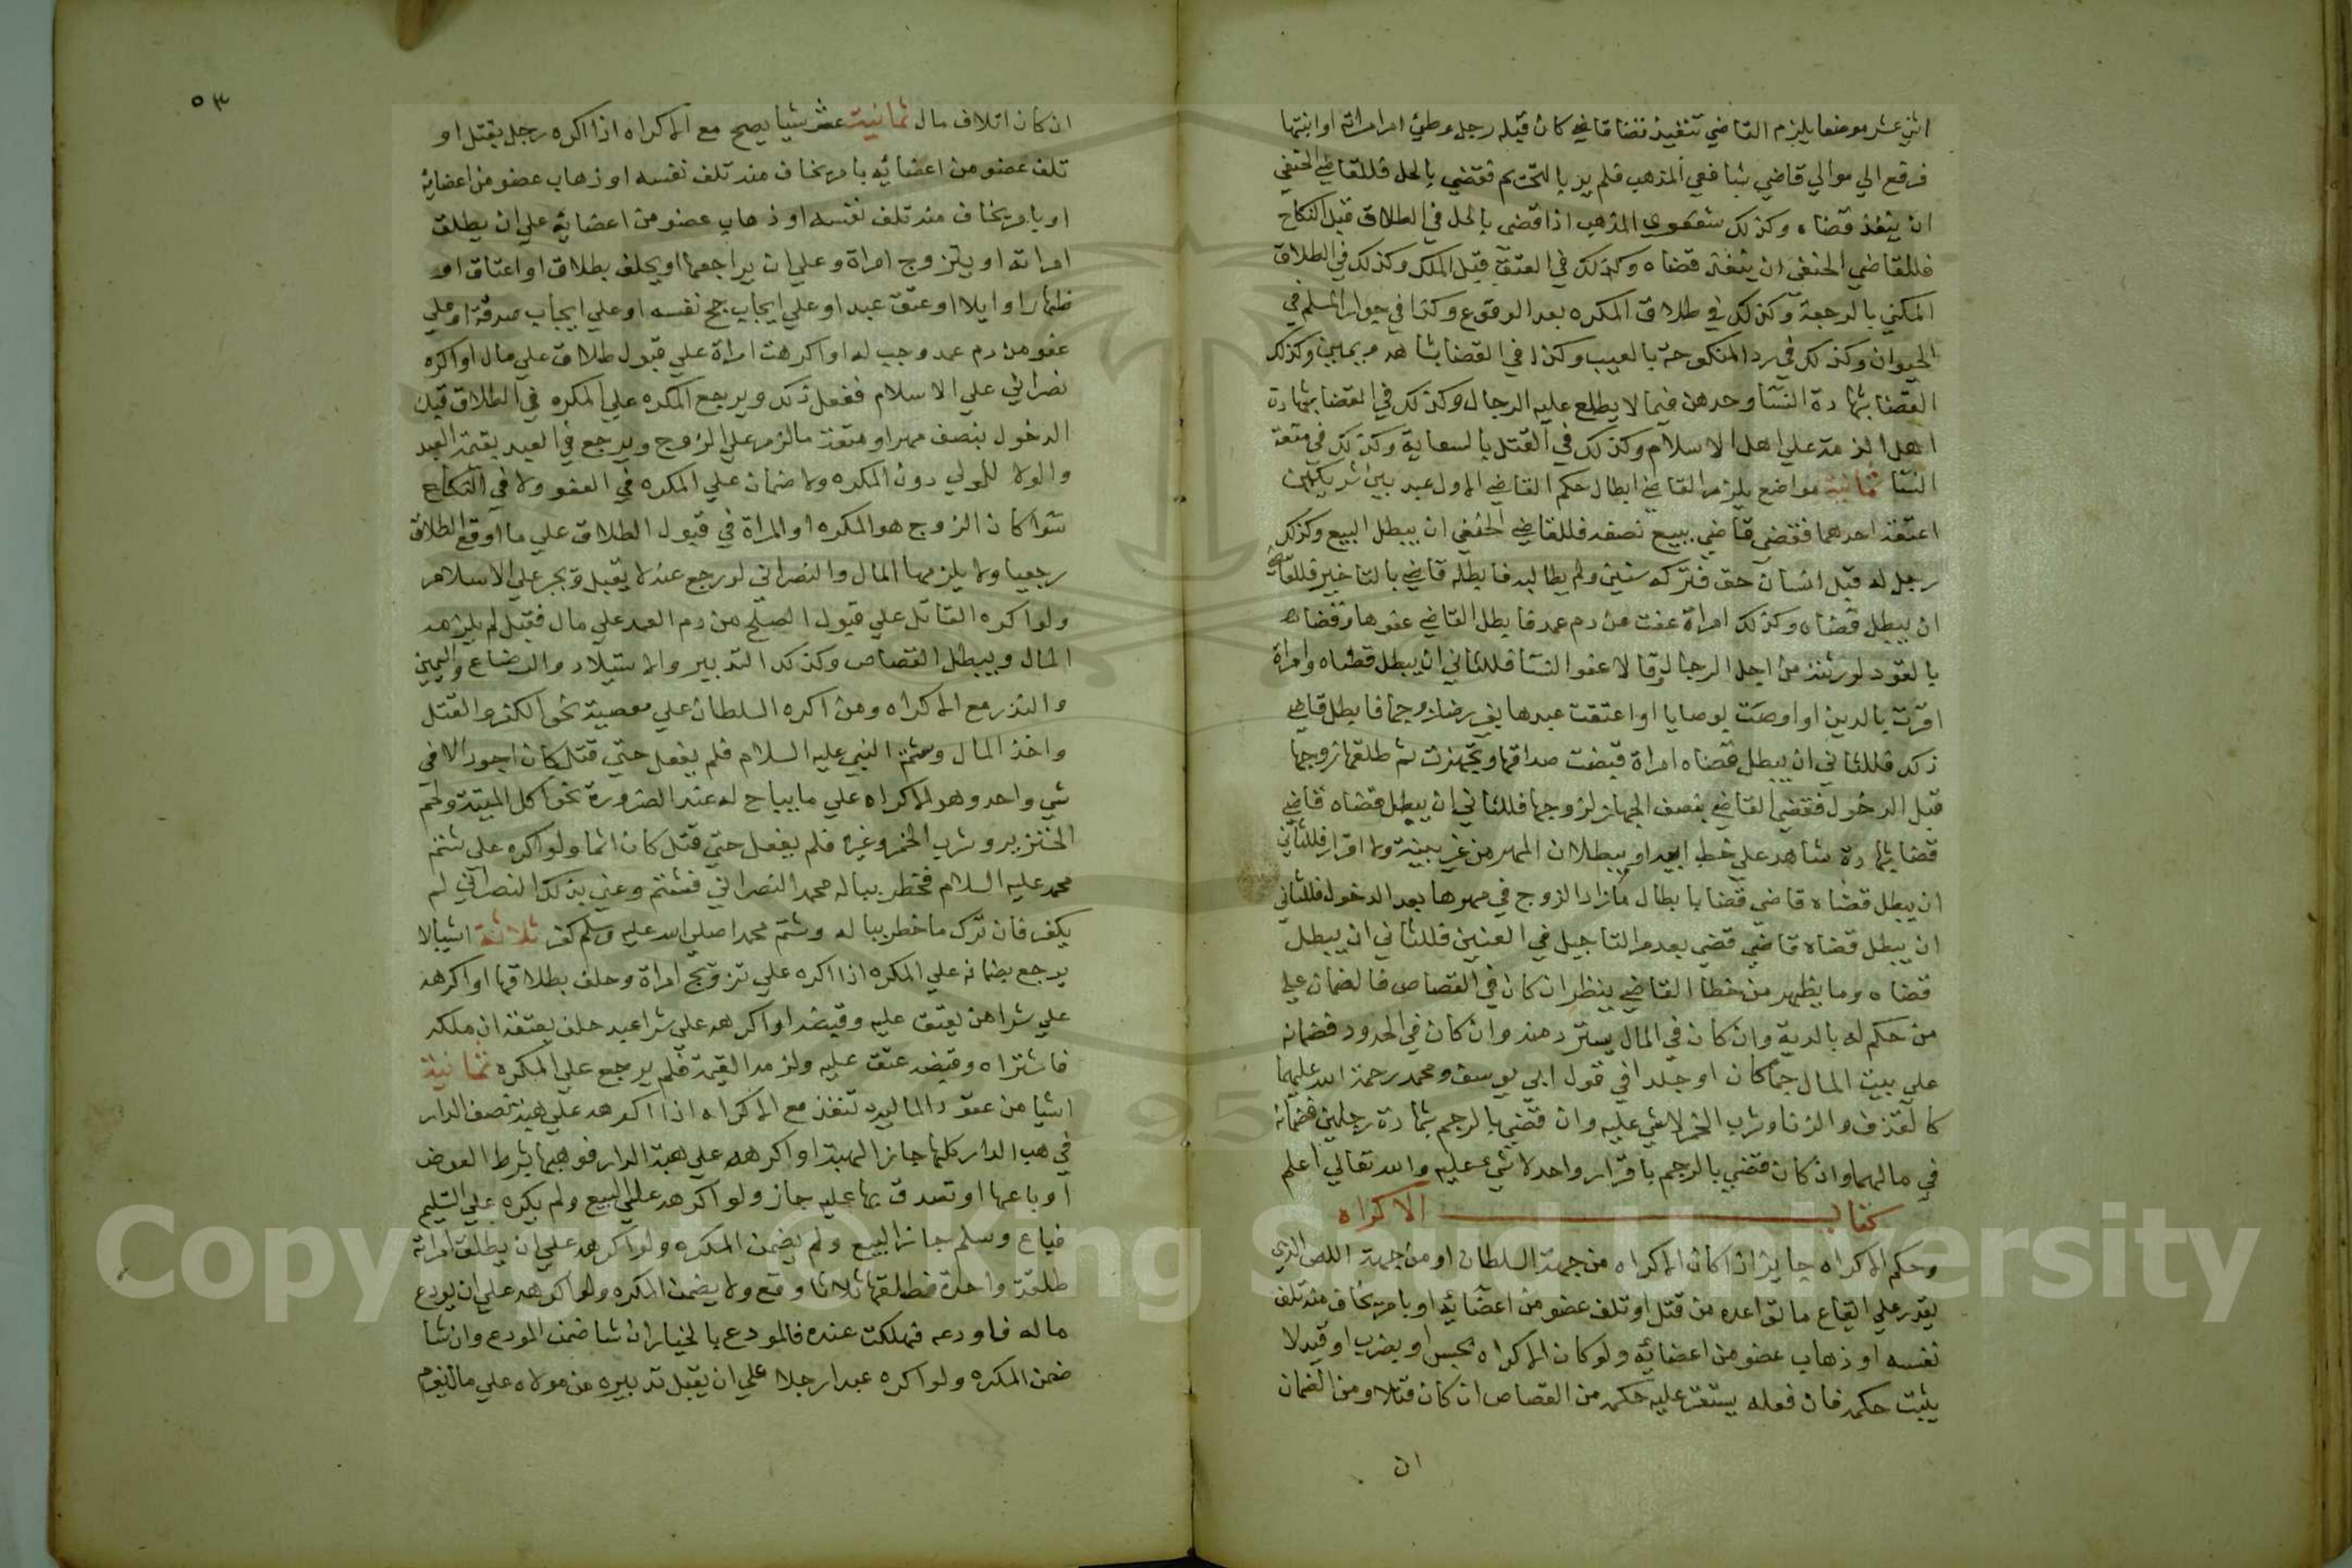 اثني عشر موضعا يلزم القاضي تنفيذ قضا قاضي كان قبله رجل وطئ ام امراة او ابنتها
فرفع الي موالي قاضي شافعي المذهب فلم ير بالتحريم فقضي بالحل فللقاضي الحنفي
ان ينفذ قضاه وكذلك شفعوي المذهب اذا قضي بالحل في الطلاق قبل النكاح
فللقاضي الحنفي ان ينفذ قضاه وكذلك في العتق قبل الملك وكذلك في الطلاق
المكني بالرجعة وكذلك في طلاق المكره بعد الوقوع وكذا في جواز السلم في
الحيوان وكذلك في رد المنكوحة بالعيب وكذا في القضا بشاهد ويمين وكذلك
القضا بشهادة النسا وحدهن فيما لا يطلع عليه الرجال وكذلك في القضا بشهادة
اهل الذمة علي اهل الاسلام وكذلك في القتل بالسعاية وكذلك في متعة
النسا ثمانية مواضع يلزم القاضي ابطال حكم القاضي الاول عبد بين شريكين
اعتقه احدهما فقضي قاضي ببيع نصفه فللقاضي الحنفي ان يبطل البيع وكذلك
رجل له قبل انسان حق فتركه سنين ولم يطالبه فابطله قاضي بالتاخير فللقاضي
ان يبطل قضاه وكذلك امراة عفت من دم عمد فابطل القاضي عفوها وقضاه
بالقود لورثته من اجل الرجال وقال لا عفو النسا فللثاني ان يبطل قضاه وامراة
اقرت بالدين او اوصت بوصايا او اعتقت عبدها بغير رضا زوجها فابطل قاضي
ذلك فللثاني ان يبطل قضاه امراة قبضت صداقها وتجهزت ثم طلقها زوجها
قبل الدخول فقضي القاضي بنصف الجهاز لزوجها فللثاني ان يبطل قضاه قاضي
قضا بشهادة شاهد علي خط ابيه او ببطلان المهر من غير بينة ولا اقرار فللثاني
ان يبطل قضاه قاضي قضا بابطال مازاد الزوج في مهرها بعد الدخول فللثاني
ان يبطل قضاه قاضي قضي بعدم التاجيل في العنين فللثاني ان يبطل
قضاه وما يظهر من خطا القاضي ينظر ان كان في القصاص فالضمان علي
من حكم له بالدية وان كان في المال يسترد منه وان كان في الحدود فضمانه
علي بيت المال رجما كان او جلدا في قول ابي يوسف ومحمد رحمة الله عليهما
كالقذف والزنا وشرب الخمر لا شي عليه وان قضي بالرجم بشهادة رجلين فضمانه
في مالهما وان كان قضي بالرجم باقرار واحد لا شيء عليه والله تعالي اعلم
كتاب الاكراه
وحكم الاكراه جايز اذا كان الاكراه من جهة السلطان او من جهة اللص الذي
يقدر علي ايقاع ما تواعده من قتل او تلف عضو من اعضائه او بامر يخاف منه تلف
نفسه او ذهاب عضو من اعضائه ولو كان الاكراه بحبس او بضرب او قيد لا
يثبت حكمه فان فعله يستقر عليه حكمه من القصاص ان كان قتلا ومن الضمان
ان
٥٣
ان كان اتلاف مال ثمانية عشر شيا يصح مع الاكراه اذا اكره رجل بقتل او
تلف عضو من اعضائه بامر يخاف منه تلف نفسه او ذهاب عضو من اعضائه
او بامر يخاف منه تلف نفسه او ذهاب عضو من اعضائه علي ان يطلق
امراته او يتزوج امراة وعلي ان يراجعها او يحلف بطلاق او اعتاق او
ظهار او ايلا او عتق عبد او علي ايجاب حج نفسه او علي ايجاب صدقة او علي
عفو من دم عمد وجب له او اكرهت امراة علي قبول طلاق علي مال او اكره
نصراني علي الاسلام ففعل ذلك ويرجع المكره علي المكره في الطلاق قبل
الدخول بنصف مهر او متعة مالزم علي الزوج ويرجع في العبد بقيمة العبد
والولا للمولي دون المكره ولا ضمان علي المكره في العفو ولا في النكاح
سوا كان الزوج هو المكره او المراة في قبول الطلاق علي ما اوقع الطلاق
رجعيا ولا يلزمها المال والنصراني لو رجع عنه لا يقبل ويجبر علي الاسلام
ولو اكره القاتل علي قبول الصلح من دم العمد علي مال فقبل لم يلزمه
المال ويبطل القصاص وكذلك التدبير والاستيلاد والرضاع واليمين
والنذر مع الاكراه ومن اكره السلطان علي معصية نحو الكفر والقتل
واخذ المال وشتم النبي عليه السلام فلم يفعل حتي قتل كان اجود الا في
شي واحد وهو الاكراه علي ما يباح له عند الضرورة نحو اكل الميتة ولحم
الخنزير وشرب الخمر وغيره فلم يفعل حتي قتل كان اثما ولو اكره علي شتم
محمد عليه السلام فخطر بباله محمد النصراني فشتم وعني بذلك النصراني لم
يكفر فان ترك ما خطر بباله وشتم محمدا صلي الله عليه وسلم كفر ثلاثة اشيا لا
يرجع بضمانه علي المكره اذا اكره علي تزويج امراة وحلف بطلاقها او اكرهه
علي شرا من يعتق عليه وقبضه او اكرهه علي شرا عبد حلف بعتقه ان ملكه
فاشتراه وقبضه عتق عليه ولزمه القيمة فلم يرجع علي المكره ثمانية
اشيا من عقود المالية تنفذ مع الاكراه اذا اكرهه علي هبة نصف الدار
في هب الدار كلها جاز الهبة او اكرهه علي هبة الدار فوهبها بشرط العوض
او باعها او تصدق بها عليه جاز ولو اكرهه علي البيع ولم يكره علي التسليم
فباع وسلم جاز البيع ولم يضمن المكره ولو اكرهه علي ان يطلق امراته
طلقة واحدة فطلقها ثلاثا وقع ولا يضمن المكره ولو اكرهه علي ان يودع
ماله فاودعه فهلكت عنده فالمودع بالخيار ان شا ضمن المودع وان شا
ضمن المكره ولو اكره عبدا رجلا علي ان يقبل تدبيره من مولاه علي مال
Copyright © King Saud University
1957